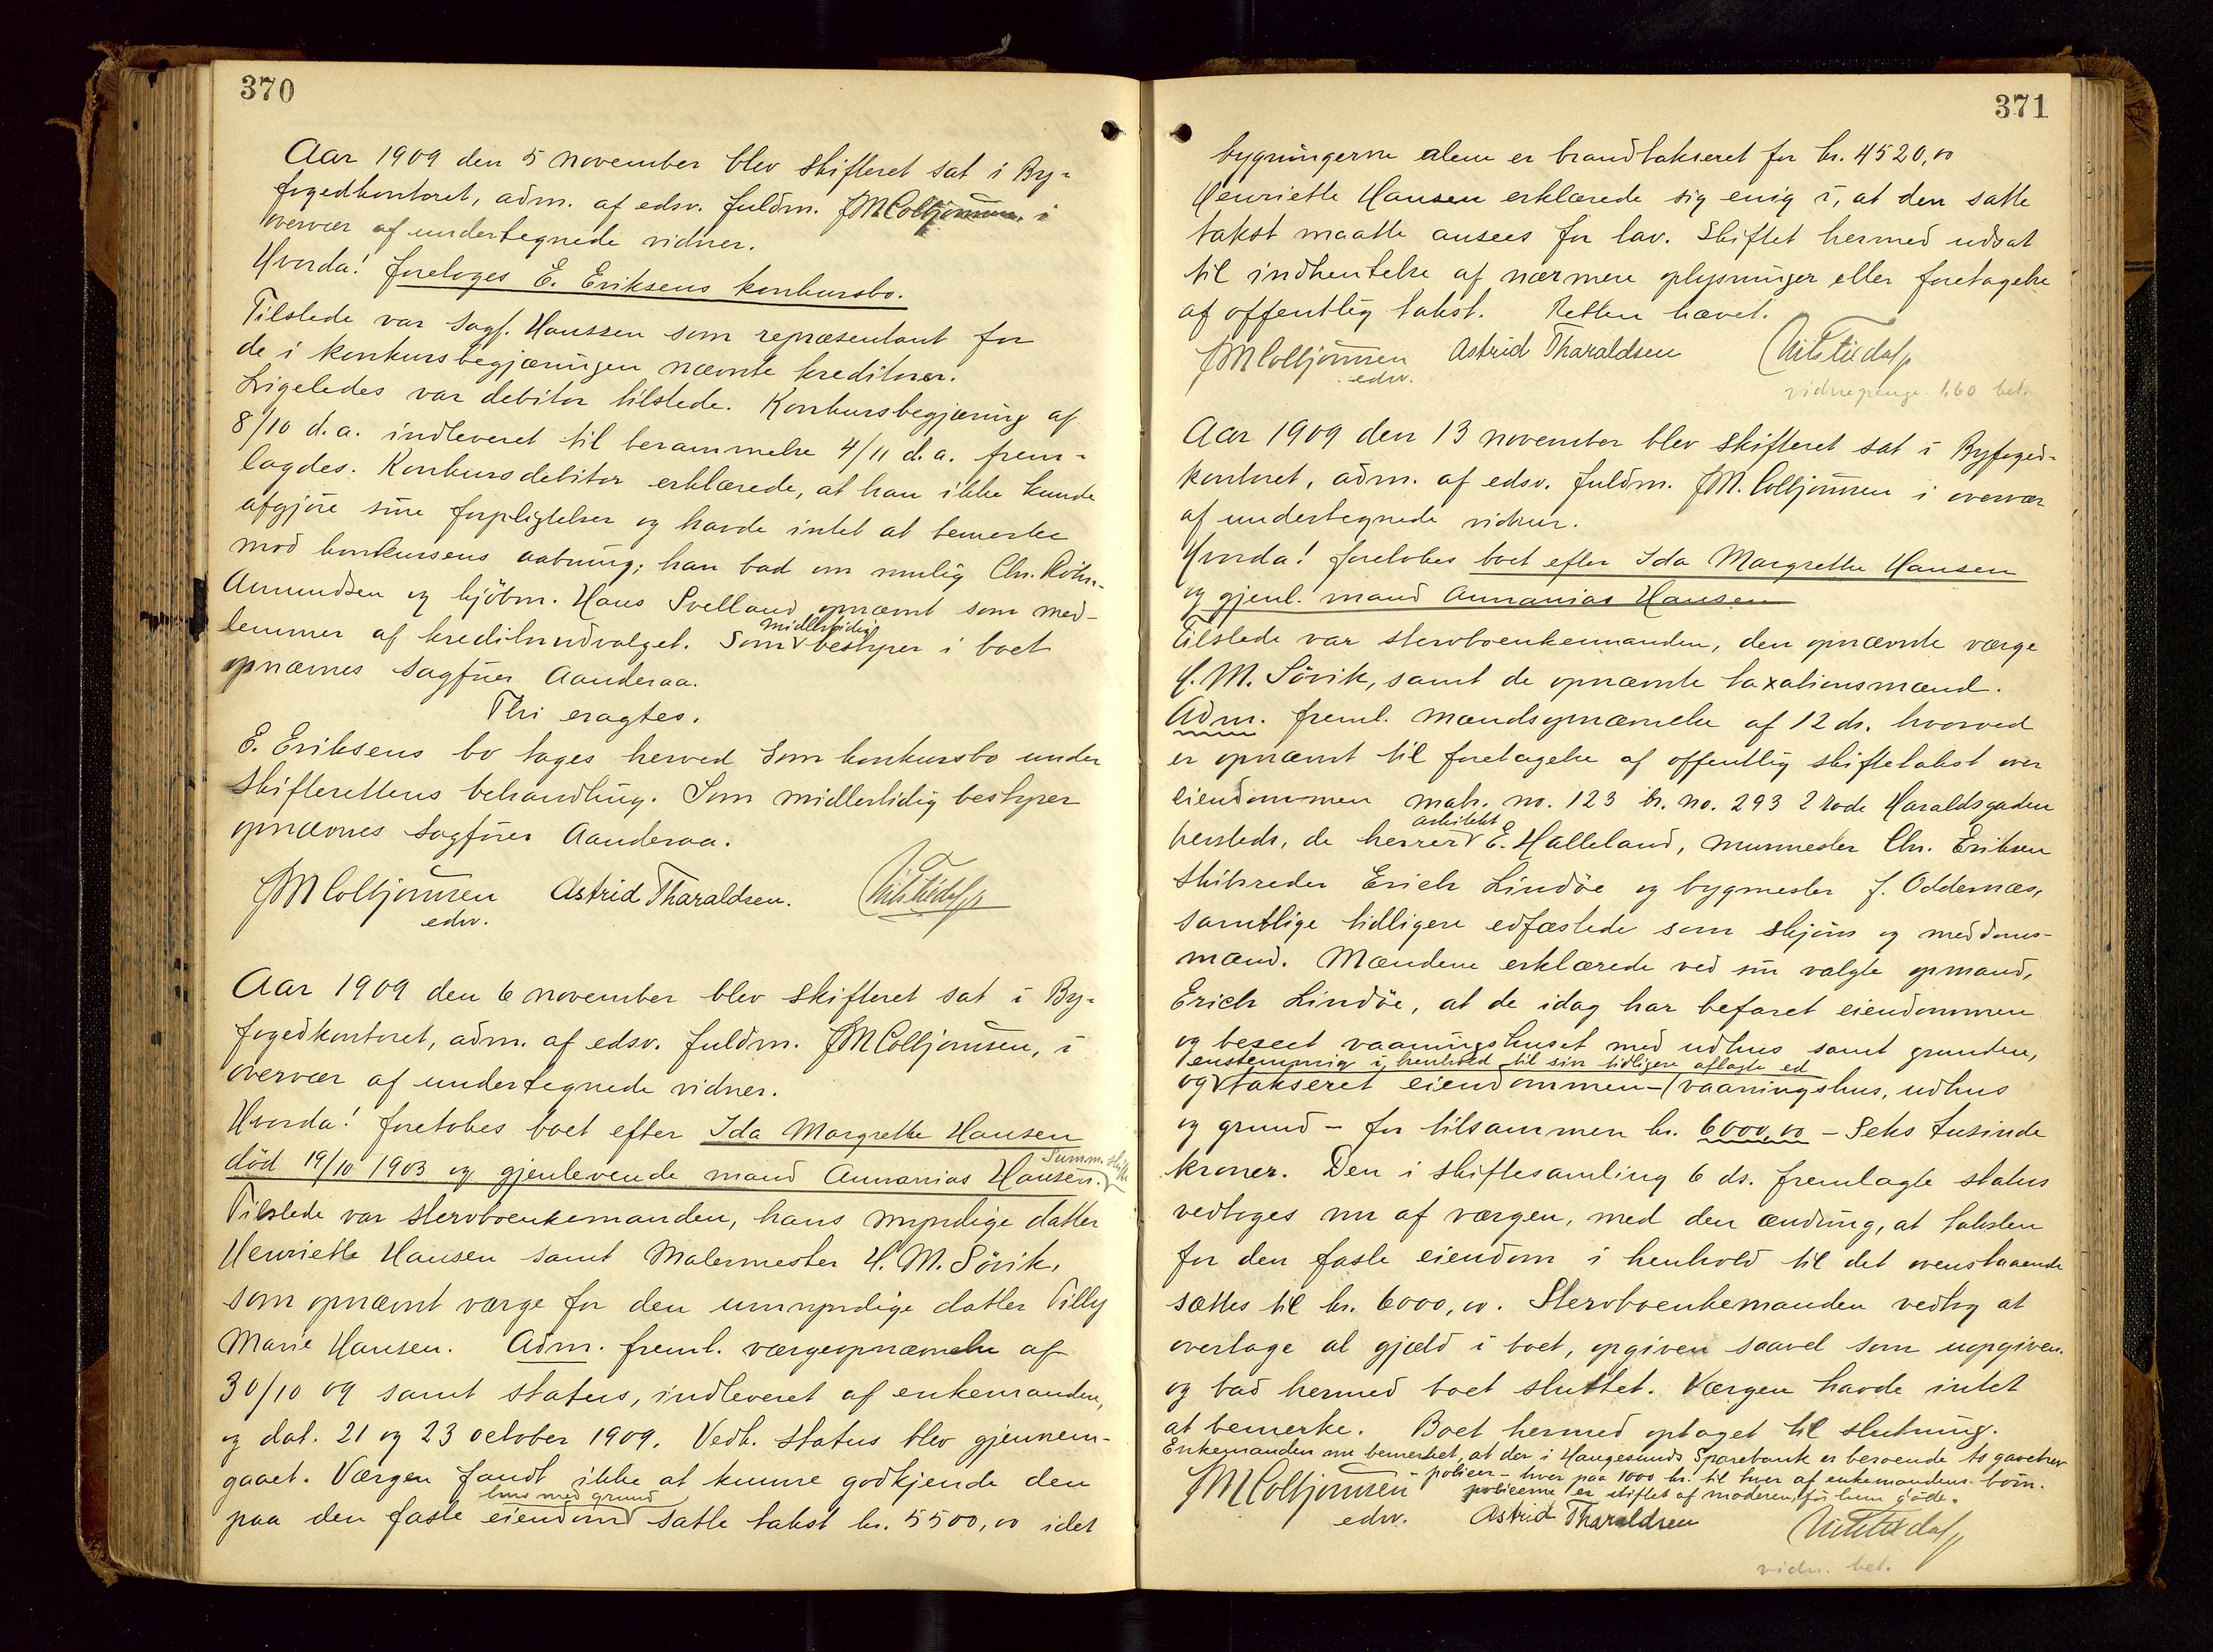 370
Aar 1909 den 5 november blev skifteret sat i By-
fogedkontoret, adm. af edsv. fuldm. JM Colbjørnsen i
overvær af undertegnede vidner.
Hvorda! foretoges E. Eriksens konkursbo.
Tilstede var sagf. Hanssen som repræsentant for
de i konkursbegjæringen nævnte kreditorer.
Ligeledes var debitor tilstede. Konkursbegjæring af
8/10 d.a. indleveret til berammelse 4/11 d.a. frem-
lagdes. Konkursdebitor erklærede, at han ikke kunde
afgjøre sine forpligtelser og havde intet at bemerke
mod konkursens aabning; han bad om mulig Chr.
Amundsen og kjøbm. Hans Svelland opnævnt som med-
lemmer af kreditorudvalget. Som midlertidig bestyrer i boet
opnævnes sagfører Aanderaa.
Thi eragtes.
E. Eriksens bo tages herved som konkursbo under
skifterettens behandling. Som midlertidig bestyrer
opnævnes sagfører Aanderaa.
JM Colbjørnsen Astrid Tharaldsen.
edsv.
Aar 1909 den 6 november blev skifteret sat i By-
fogedkontoret, adm. af edsv. fuldm. JM Colbjørnsen, i
overvær af undertegnede vidner.
Hvorda! foretokes boet efter Ida Margrethe Hansen
død 19/10 1903 og gjenlevende mand Annanias Hansen. Summ. skifte
Tilstede var sterboenkemanden, hans myndige datter
Henriette Hansen samt Malermester H. M. Sövik,
som opnævnt værge for den umyndige datter Tilly
Marie Hansen. Adm. freml. værgeopnævnelse af
30/10 09 samt status, indleveret af enkemanden,
og dat. 21 og 23 october 1909. Vedk. status blev gjennem-
gaaet. Værgen fandt ikke at kunne godkjende den
paa den faste eiendom hus med grund satte takst kr. 5500,00 idet
371
bygningerne alene er brandtakseret for kr. 4520,00
Henriette Hansen erklærede sig enig i, at den satte
takst maatte ansees for lav. Skiftet hermed udsat
til indhentelse af nærmere oplysninger eller foretagelse
af offentlig takst. Retten hævet.
JM Colbjørnsen Astrid Tharaldsen
edsv.
vidnepenge 1,60 bet.
Aar 1909 den 13 november blev skifteret sat i Byfoged-
kontoret, adm. af edsv. fuldm. JM. Colbjørnsen i overvær
af undertegnede vidner.
Hvorda! foretokes boet efter Ida Margrethe Hansen
og gjenl. mand Annanias Hansen
Tilstede var sterboenkemanden, den opnævnte værge
H. M. Sövik, samt de opnævnte taxationsmænd.
Adm. freml. mandsopnævnelse af 12 ds. hvorved
er opnævnt til foretagelse af offentlig skiftetakst over
eiendommen matr. no. 123 br. no. 293 2 rode Haraldsgaden
hersteds, de herrer arkitekt E. Halleland, murmester Chr. Eriksen
skibsreder Erich Lindöe og bygmester J. Oddernæs,
samtlige tidligere edfæstede som skjøns og meddoms-
mænd. Mændene erklærede ved sin valgte opmand,
Erich Lindöe, at de idag har befaret eiendommen
og beseet vaaningshuset med udhus samt grunden,
og enstemmig i henhold til sin tidligere aflagte ed takseret eiendommen - vaaningshus, udhus
og grund - for tilsammen kr. 6000,00 - Seks tusinde
kroner. Den i skiftesamling 6 ds. fremlagte status
vedtoges nu af værgen, med den ændring, at taksten
for den faste eiendom i henhold til det ovenstaaende
sættes til kr. 6000,00. Sterboenkemanden vedtog at
overtage al gjæld i boet, opgiven saavel som uopgiven
og bad hermed boet sluttet. Værgen havde intet
at bemerke. Boet hermed optaget til slutning.
Enkemanden nu bemerket, at der i Haugesunds Sparebank er beroende to gavebrev
- policer - hver paa 1000 kr. til hver af enkemandens börn.
policerne er stiftet af moderen, för hun döde.
JM Colbjørnsen
edsv. Astrid Tharaldsen
vidn. bet.